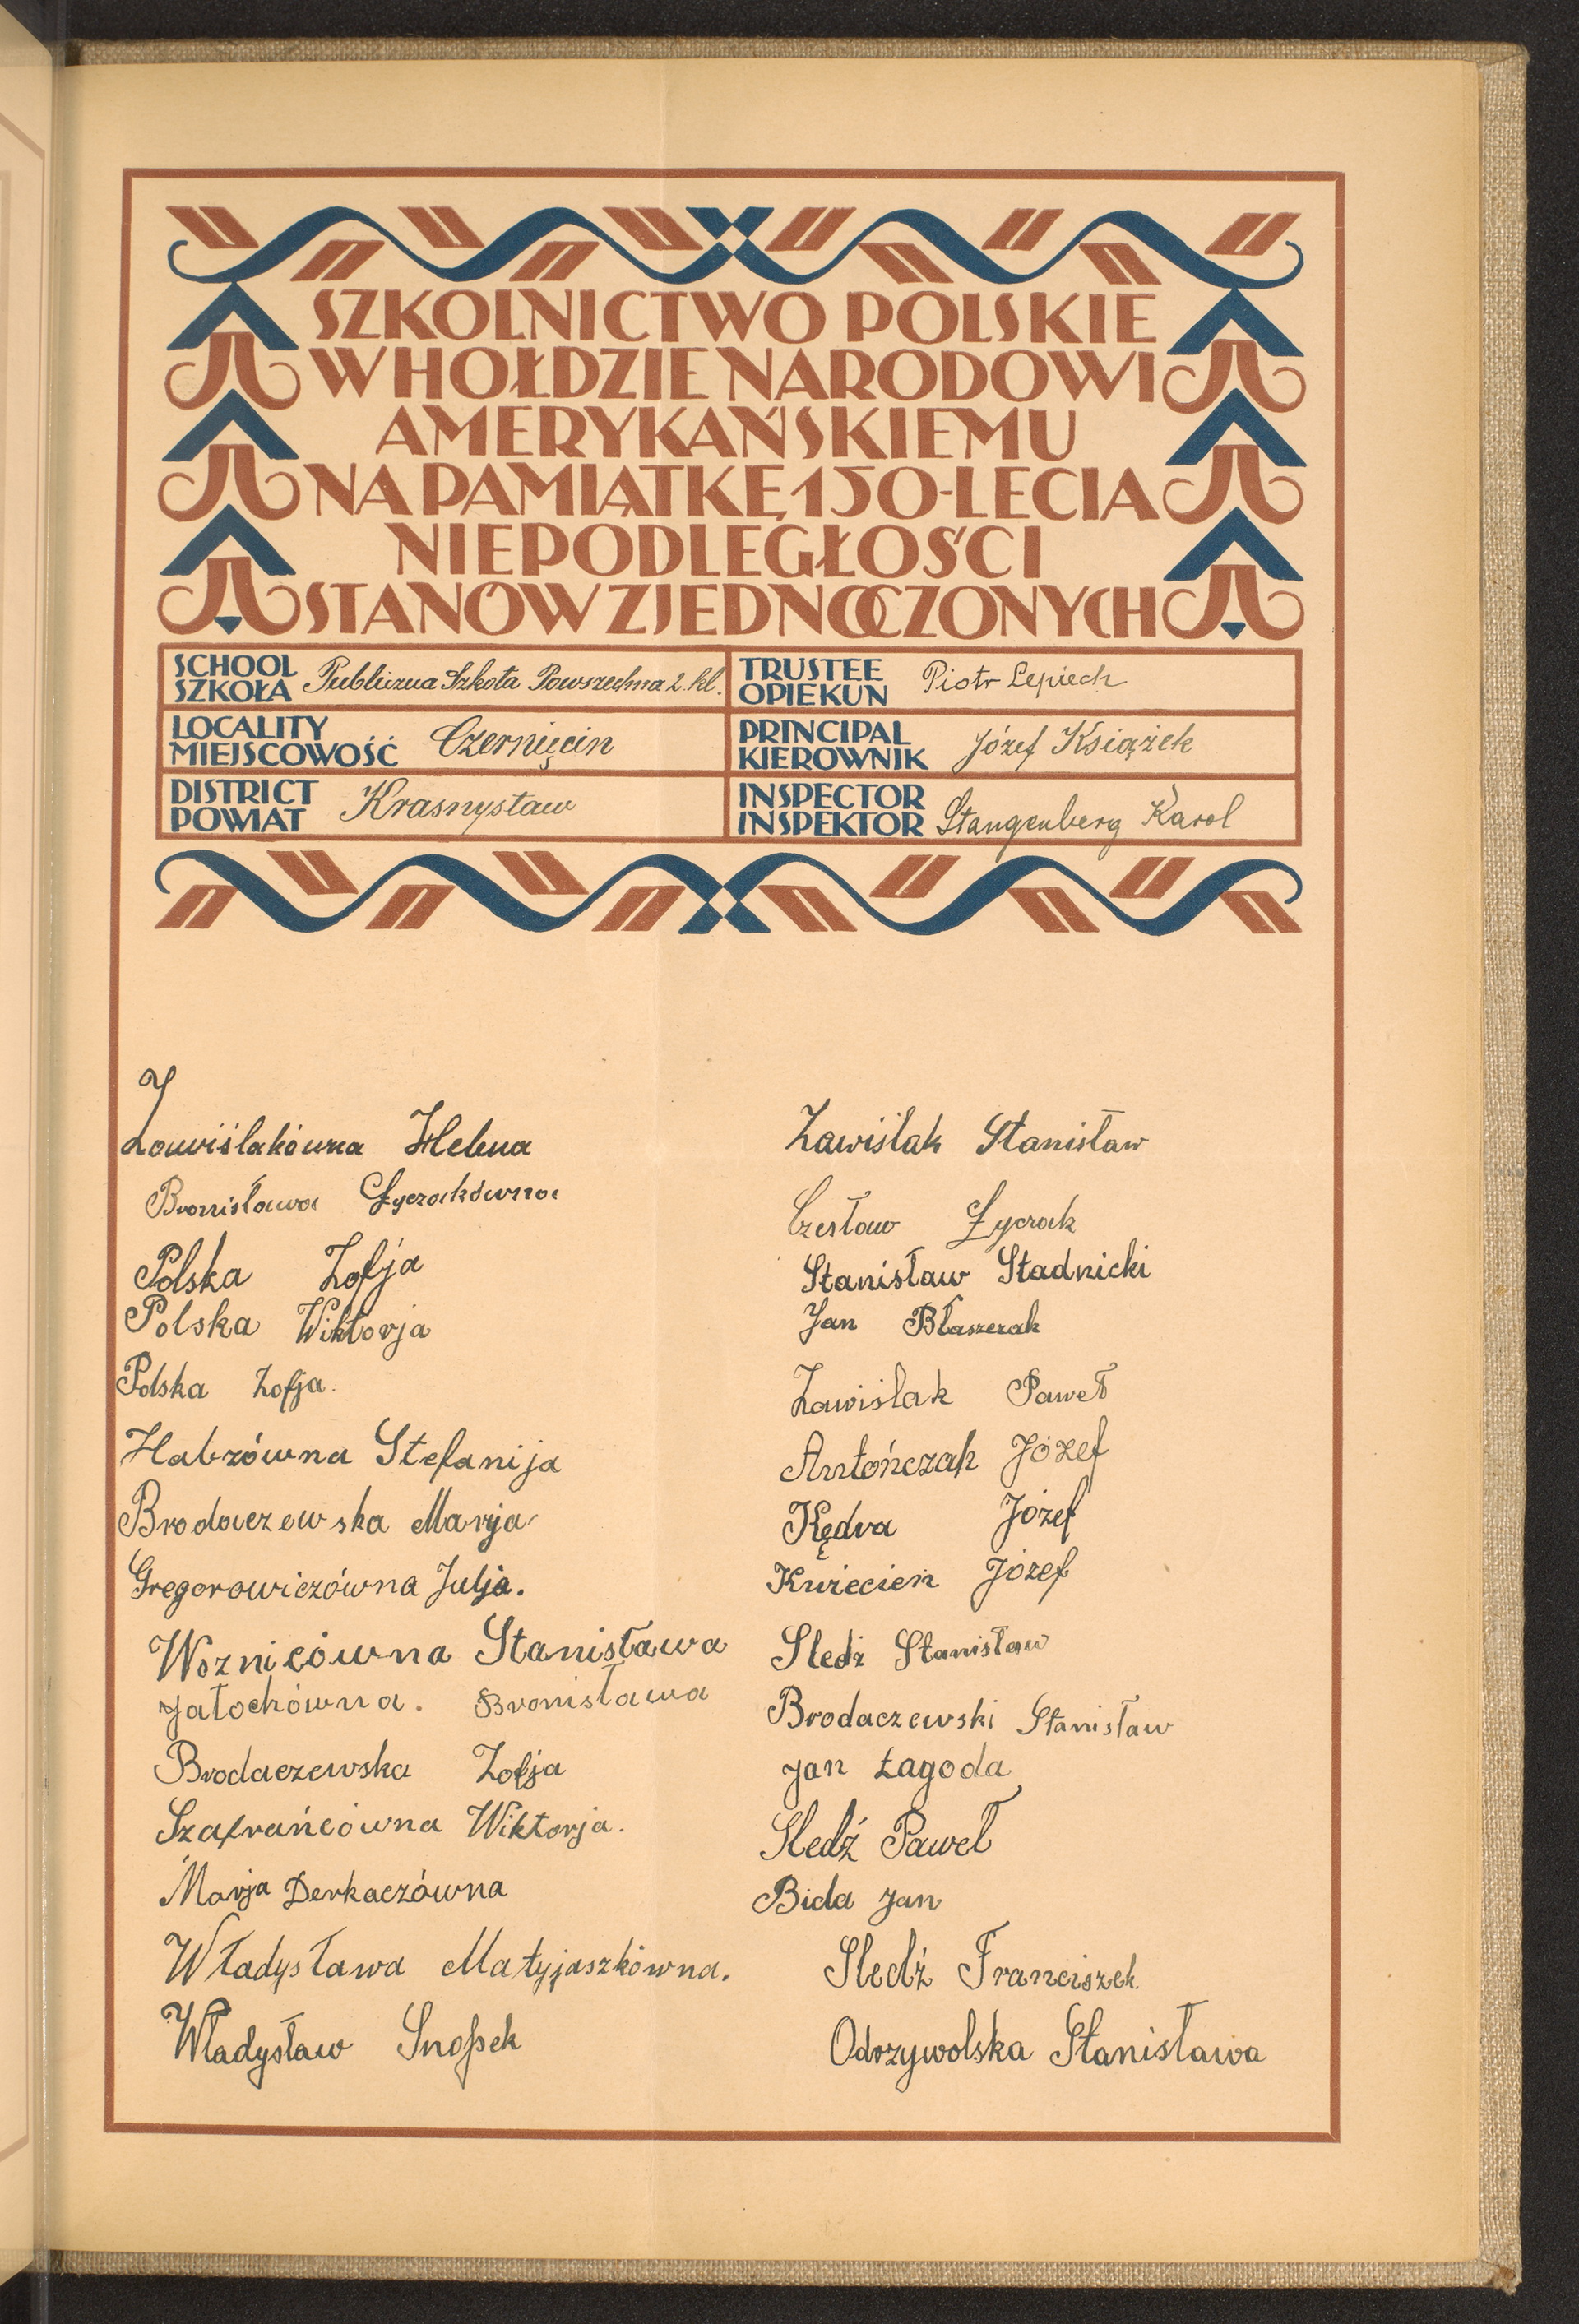 SZKOLNICTWO POLSKIE
W HOŁDZIE NARODOWI
AMERYKAŃSKIEMU
NA PAMIĄTKĘ 150-LECIA
NIEPODLEGŁOŚCI
STANÓW ZJEDNOCZONYCH
SCHOOL
SZKOŁA Publiczna Szkoła Powszechna 2 kl.
TRUSTEE
OPIEKUN Piotr Lepiech
LOCALITY
MIEJSCOWOŚĆ Czernięcin
PRINCIPAL
KIEROWNIK Józef Książek
DISTRICT
POWIAT Krasnystaw
INSPECTOR
INSPEKTOR Stangenberg Karol
Zawiślakówna Helena
Bronisława Łyczakówna
Polska Zofja
Polska Wiktorja
Polska Zofja.
Habzówna Stefanija
Brodaczewska Marja
Gregorowiczówna Julja.
Woznicówna Stanisława
Jałochówna. Bronisława
Brodaczewska Zofja
Szafrańcówna Wiktorja.
Marja Derkaczówna
Władysława Matyjaszkówna.
Władysław Snopek
Zawiślak Stanisław
Czesław Łyczak
Stanisław Stadnicki
Jan Błaszczak
Zawiślak Paweł
Antończak Józef
Kędra Józef
Kwiecień Józef
Śledź Stanisław
Brodaczewski Stanisław
Jan Łagoda
Śledź Paweł
Bida Jan
Śledź Franciszek
Odrzywolska Stanisława